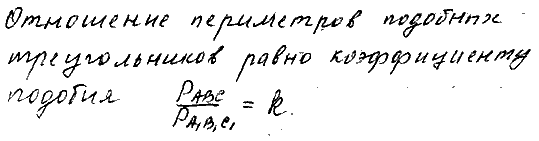 Отношение периметров подобных
треугольников равно коэффициенту
подобия P_ABC / P_A₁B₁C₁ = k.